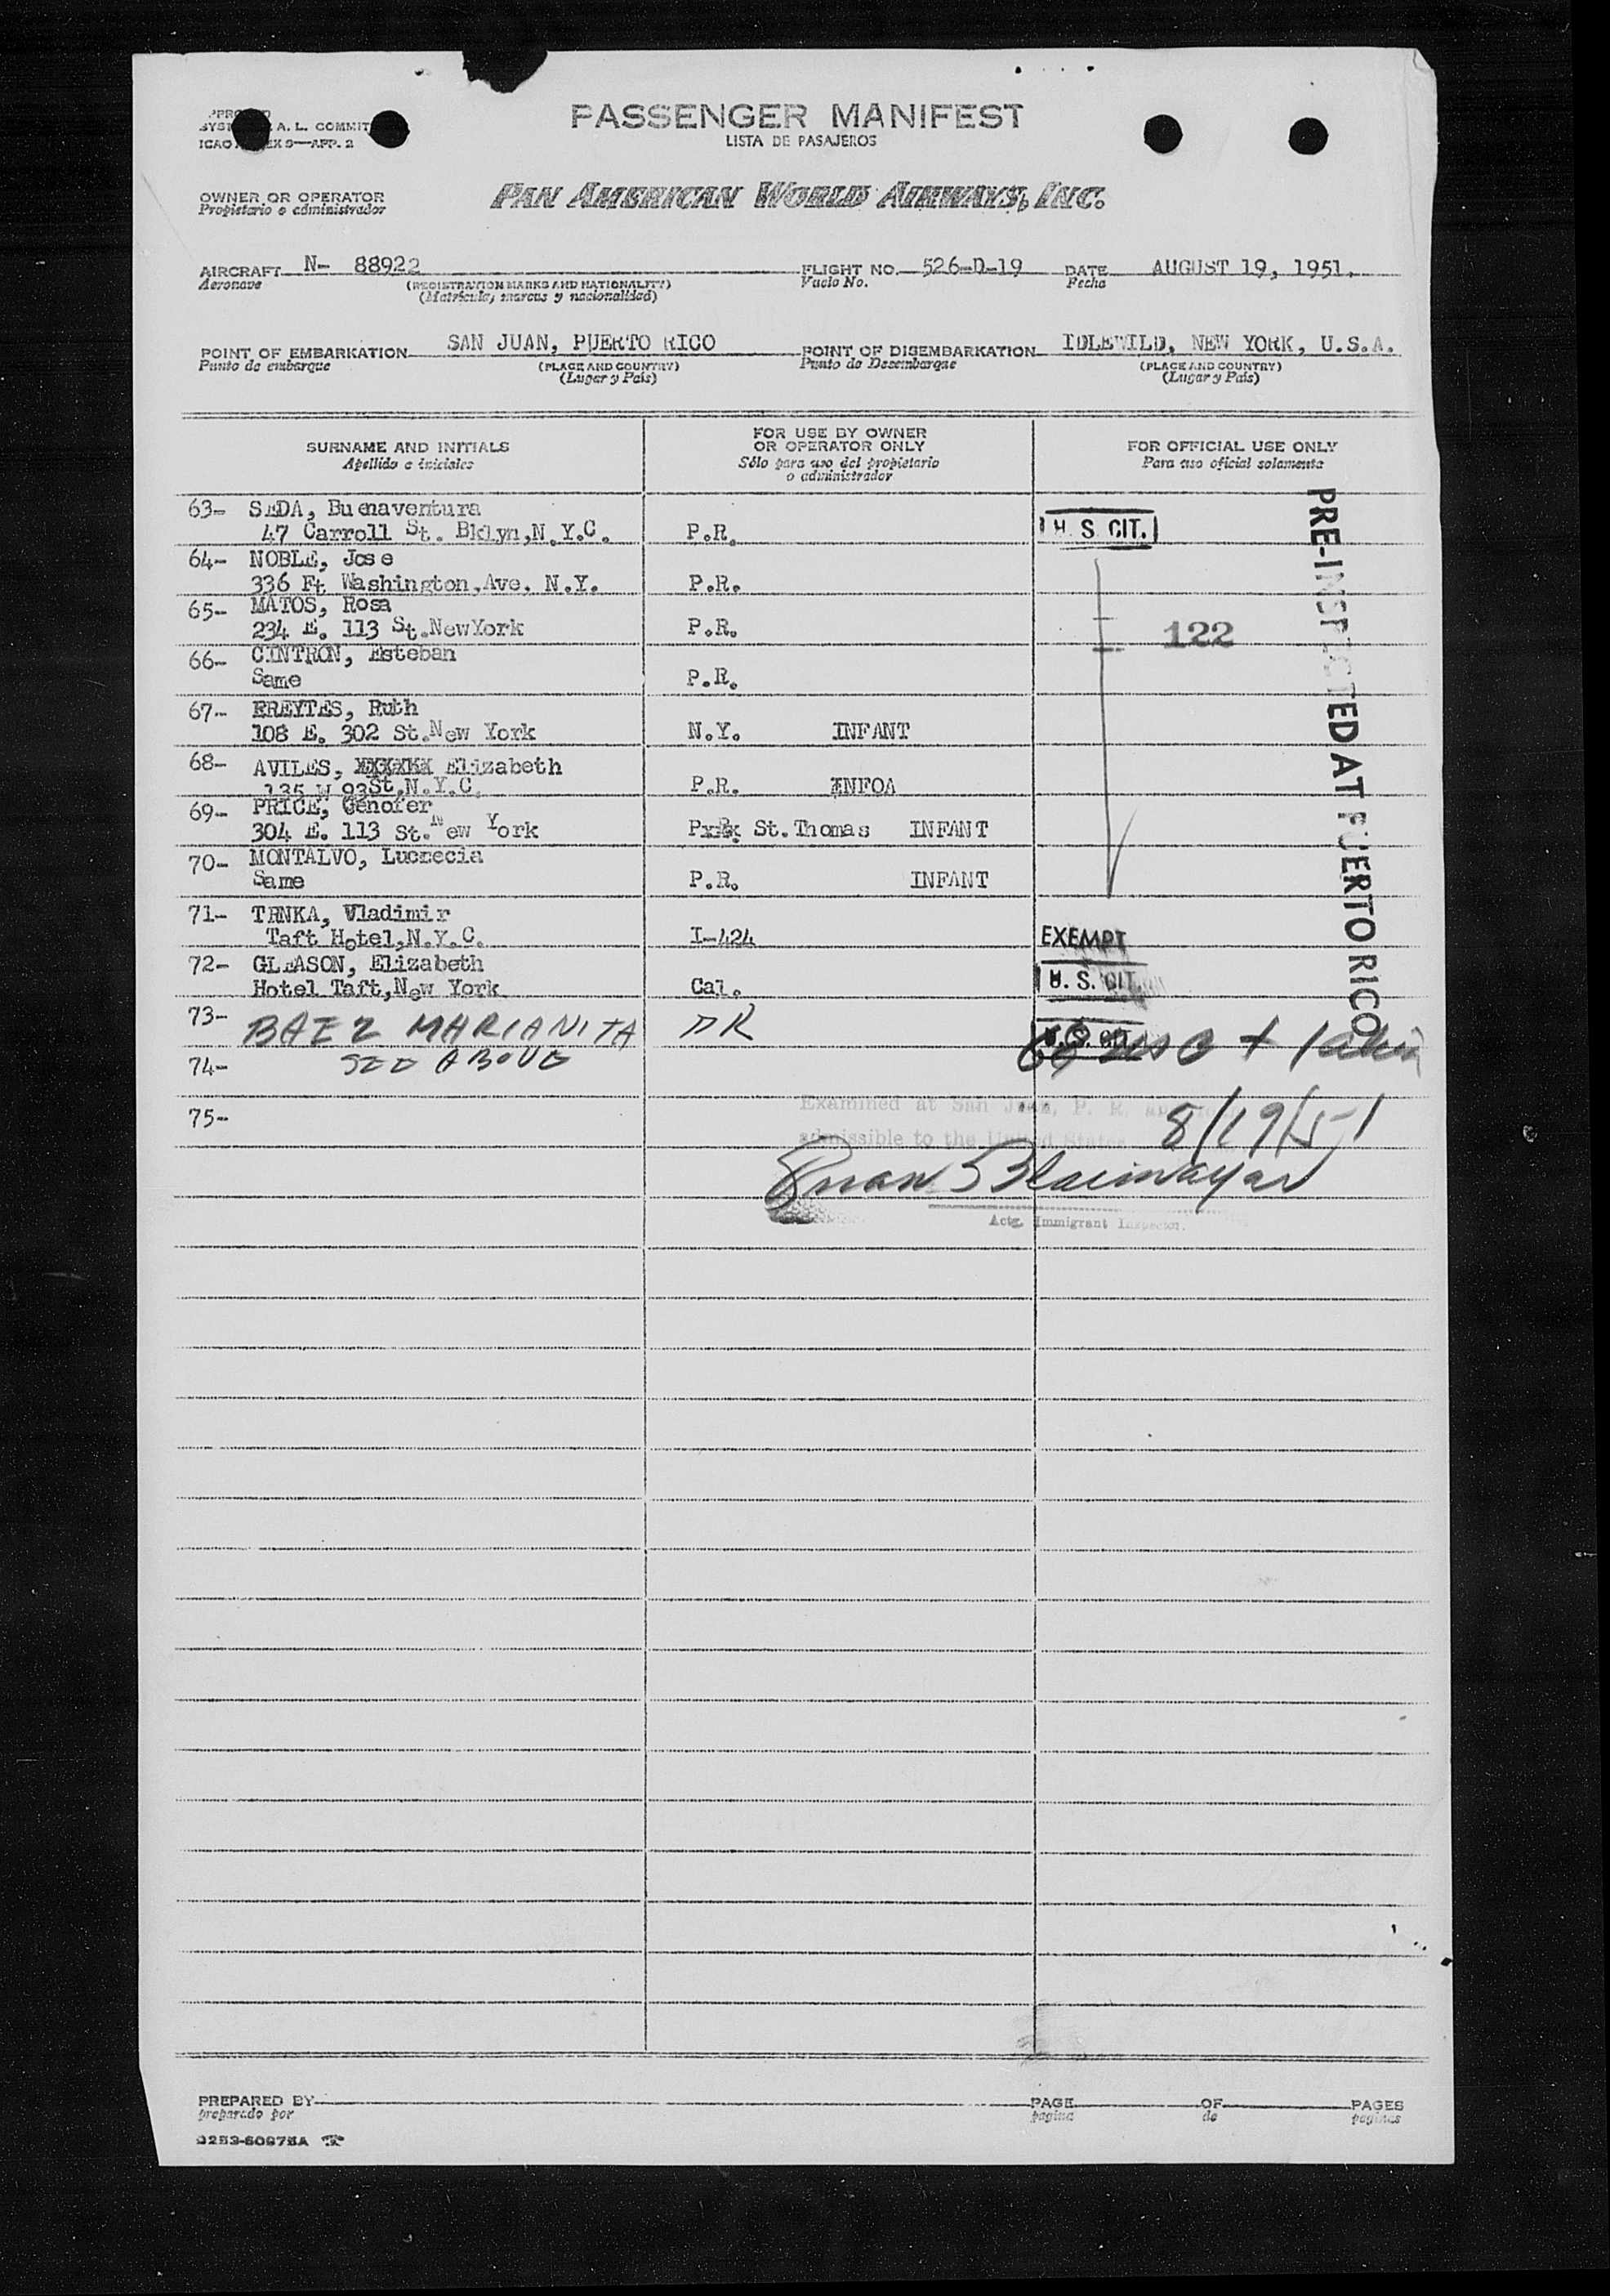 PASSENGER MANIFEST
LISTA DE PASAJEROS
A. L. COMMIT
ICAO EX 9—APP. 2
OWNER OR OPERATOR
Propietario o administrador
PAN AMERICAN WORLD AIRWAYS, INC.
AIRCRAFT N- 88922
Aeronave
(REGISTRATION MARKS AND NATIONALITY)
(Matrícula, marcas y nacionalidad)
FLIGHT NO. 526-D-19
Vuelo No.
DATE AUGUST 19, 1951.
Fecha
POINT OF EMBARKATION SAN JUAN, PUERTO RICO
Punto de embarque
(PLACE AND COUNTRY)
(Lugar y País)
POINT OF DISEMBARKATION IDLEWILD, NEW YORK, U.S.A.
Punto de Desembarque
(PLACE AND COUNTRY)
(Lugar y País)
SURNAME AND INITIALS
Apellido e iniciales
FOR USE BY OWNER
OR OPERATOR ONLY
Sólo para uso del propietario
o administrador
FOR OFFICIAL USE ONLY
Para uso oficial solamente
63- SEDA, Buenaventura
47 Carroll St. Bklyn,N.Y.C. P.R. U. S. CIT.
64- NOBLE, Jose
336 Ft Washington,Ave. N.Y. P.R.
65- MATOS, Rosa
234 E. 113 St.NewYork P.R. 122
66- CINTRON, Esteban
Same P.R.
67- EREYTES, Ruth
108 E. 302 St.New York N.Y. INFANT
68- AVILES, Elizabeth
135 W 93St,N.Y.C. P.R. INFOA
69- PRICE, Genofer
304 E. 113 St.New York PxRx St.Thomas INFANT
70- MONTALVO, Lucrecia
Same P.R. INFANT
71- TRNKA, Vladimir
Taft Hotel,N.Y.C. I-424 EXEMPT
72- GLEASON, Elizabeth
Hotel Taft,New York Cal. U. S. CIT.
73- BAEZ MARIANITA DR U. S. CIT.
74- SEE ABOVE
75-
PRE-INSPECTED AT PUERTO RICO
Examined at San Juan, P. R.
admissible to the United States
8/19/51
Actg. Immigrant Inspector.
PREPARED BY
preparado por
PAGE OF PAGES
pagina de paginas